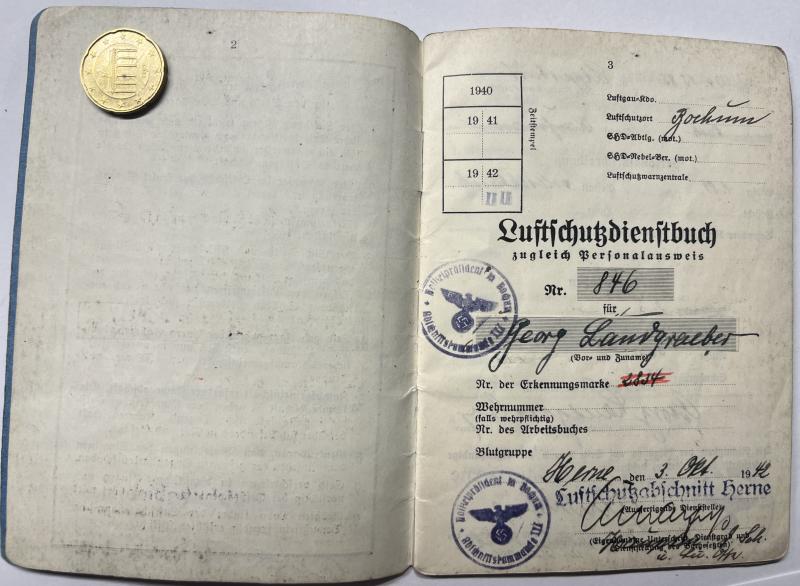 2
3
1940
19 41
19 42
Zeitstempel
Luftgau-Kdo.
Luftschutzort Bochum
SHD-Abtlg. (mot.)
SHD-Nebel-Ber. (mot.)
Luftschutzwarnzentrale
Luftschutzdienstbuch
zugleich Personalausweis
Nr. 846
für
Georg Landgraeber
(Vor- und Zuname)
Polizeipräsident in Bochum
Abschnittskommando III
Nr. der Erkennungsmarke 2834
Wehrnummer
(falls wehrpflichtig)
Nr. des Arbeitsbuches
Blutgruppe
Herne den 3. Okt. 1942
Luftschutzabschnitt Herne
(Ausfertigende Dienststelle)
Polizeipräsident in Bochum
Abschnittskommando III
(Eigenhändige Unterschrift, Dienstgrad und
Dienststellung des Vorgesetzten)